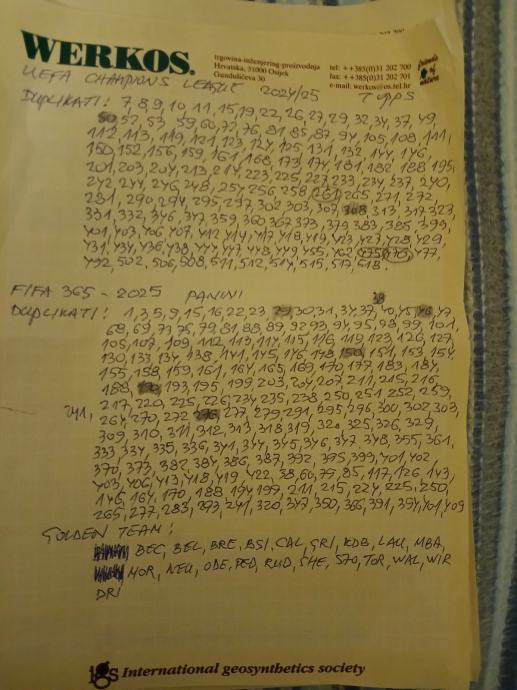 WERKOS.
trgovina-inženjering-proizvodnja
Hrvatska, 31000 Osijek
Gundulićeva 30
tel: ++385(0)31 202 700
fax: ++385(0)31 202 701
e-mail: werkos@os.tel.hr
UEFA CHAMPIONS LEAGUE 2024/25 TOPPS
DUPLIKATI: 7, 8, 9, 10, 11, 15, 19, 22, 26, 27, 29, 32, 34, 37, 49,
50, 52, 53, 59, 60, 72, 76, 81, 85, 87, 94, 105, 108, 111,
112, 113, 119, 121, 123, 124, 125, 131, 132, 144, 146,
150, 152, 156, 159, 161, 168, 173, 174, 181, 182, 188, 195,
201, 203, 204, 213, 214, 223, 225, 227, 233, 234, 237, 240,
242, 244, 246, 248, 254, 256, 258, 261, 265, 271, 272,
281, 290, 294, 295, 297, 302, 303, 307, 308, 313, 317, 323,
331, 332, 346, 347, 359, 360, 367, 373, 379, 383, 385, 393,
401, 403, 406, 407, 412, 414, 417, 418, 419, 423, 427, 428, 429,
431, 434, 436, 438, 444, 447, 448, 449, 455, 462, 475, 476, 477,
492, 502, 506, 508, 511, 512, 514, 515, 517, 518.
FIFA 365 - 2025 PANINI
38
DUPLIKATI: 1, 3, 5, 9, 15, 16, 22, 23, 29, 30, 31, 34, 37, 40, 45, 46, 47,
68, 69, 73, 75, 79, 81, 88, 89, 92, 93, 94, 95, 98, 99, 101,
105, 107, 109, 112, 113, 114, 115, 116, 119, 123, 126, 127,
130, 133, 134, 138, 141, 145, 146, 148, 150, 151, 153, 154,
155, 158, 159, 161, 164, 165, 169, 170, 177, 183, 184,
188, 190, 193, 195, 199, 203, 204, 207, 211, 215, 216,
217, 220, 225, 226, 234, 235, 238, 250, 251, 252, 259,
241, 264, 270, 272, 276, 277, 279, 291, 295, 296, 300, 302, 303,
309, 310, 311, 312, 313, 318, 319, 320, 325, 326, 329,
333, 334, 335, 336, 341, 344, 345, 346, 347, 348, 355, 361,
370, 373, 382, 384, 386, 387, 392, 395, 399, 401, 402,
403, 406, 413, 418, 419, 422, 38, 60, 79, 85, 117, 126, 143,
146, 164, 170, 188, 194, 197, 211, 215, 224, 225, 250,
265, 277, 283, 293, 241, 320, 347, 350, 366, 391, 394, 401, 409
GOLDEN TEAM:
BEG, BEL, BRE, BSI, CAL, GRI, KDB, LAU, MBA,
MOR, NEU, ODE, PED, RUD, SHE, STO, TOR, WAL, WIR
DRI
IGS International geosynthetics society